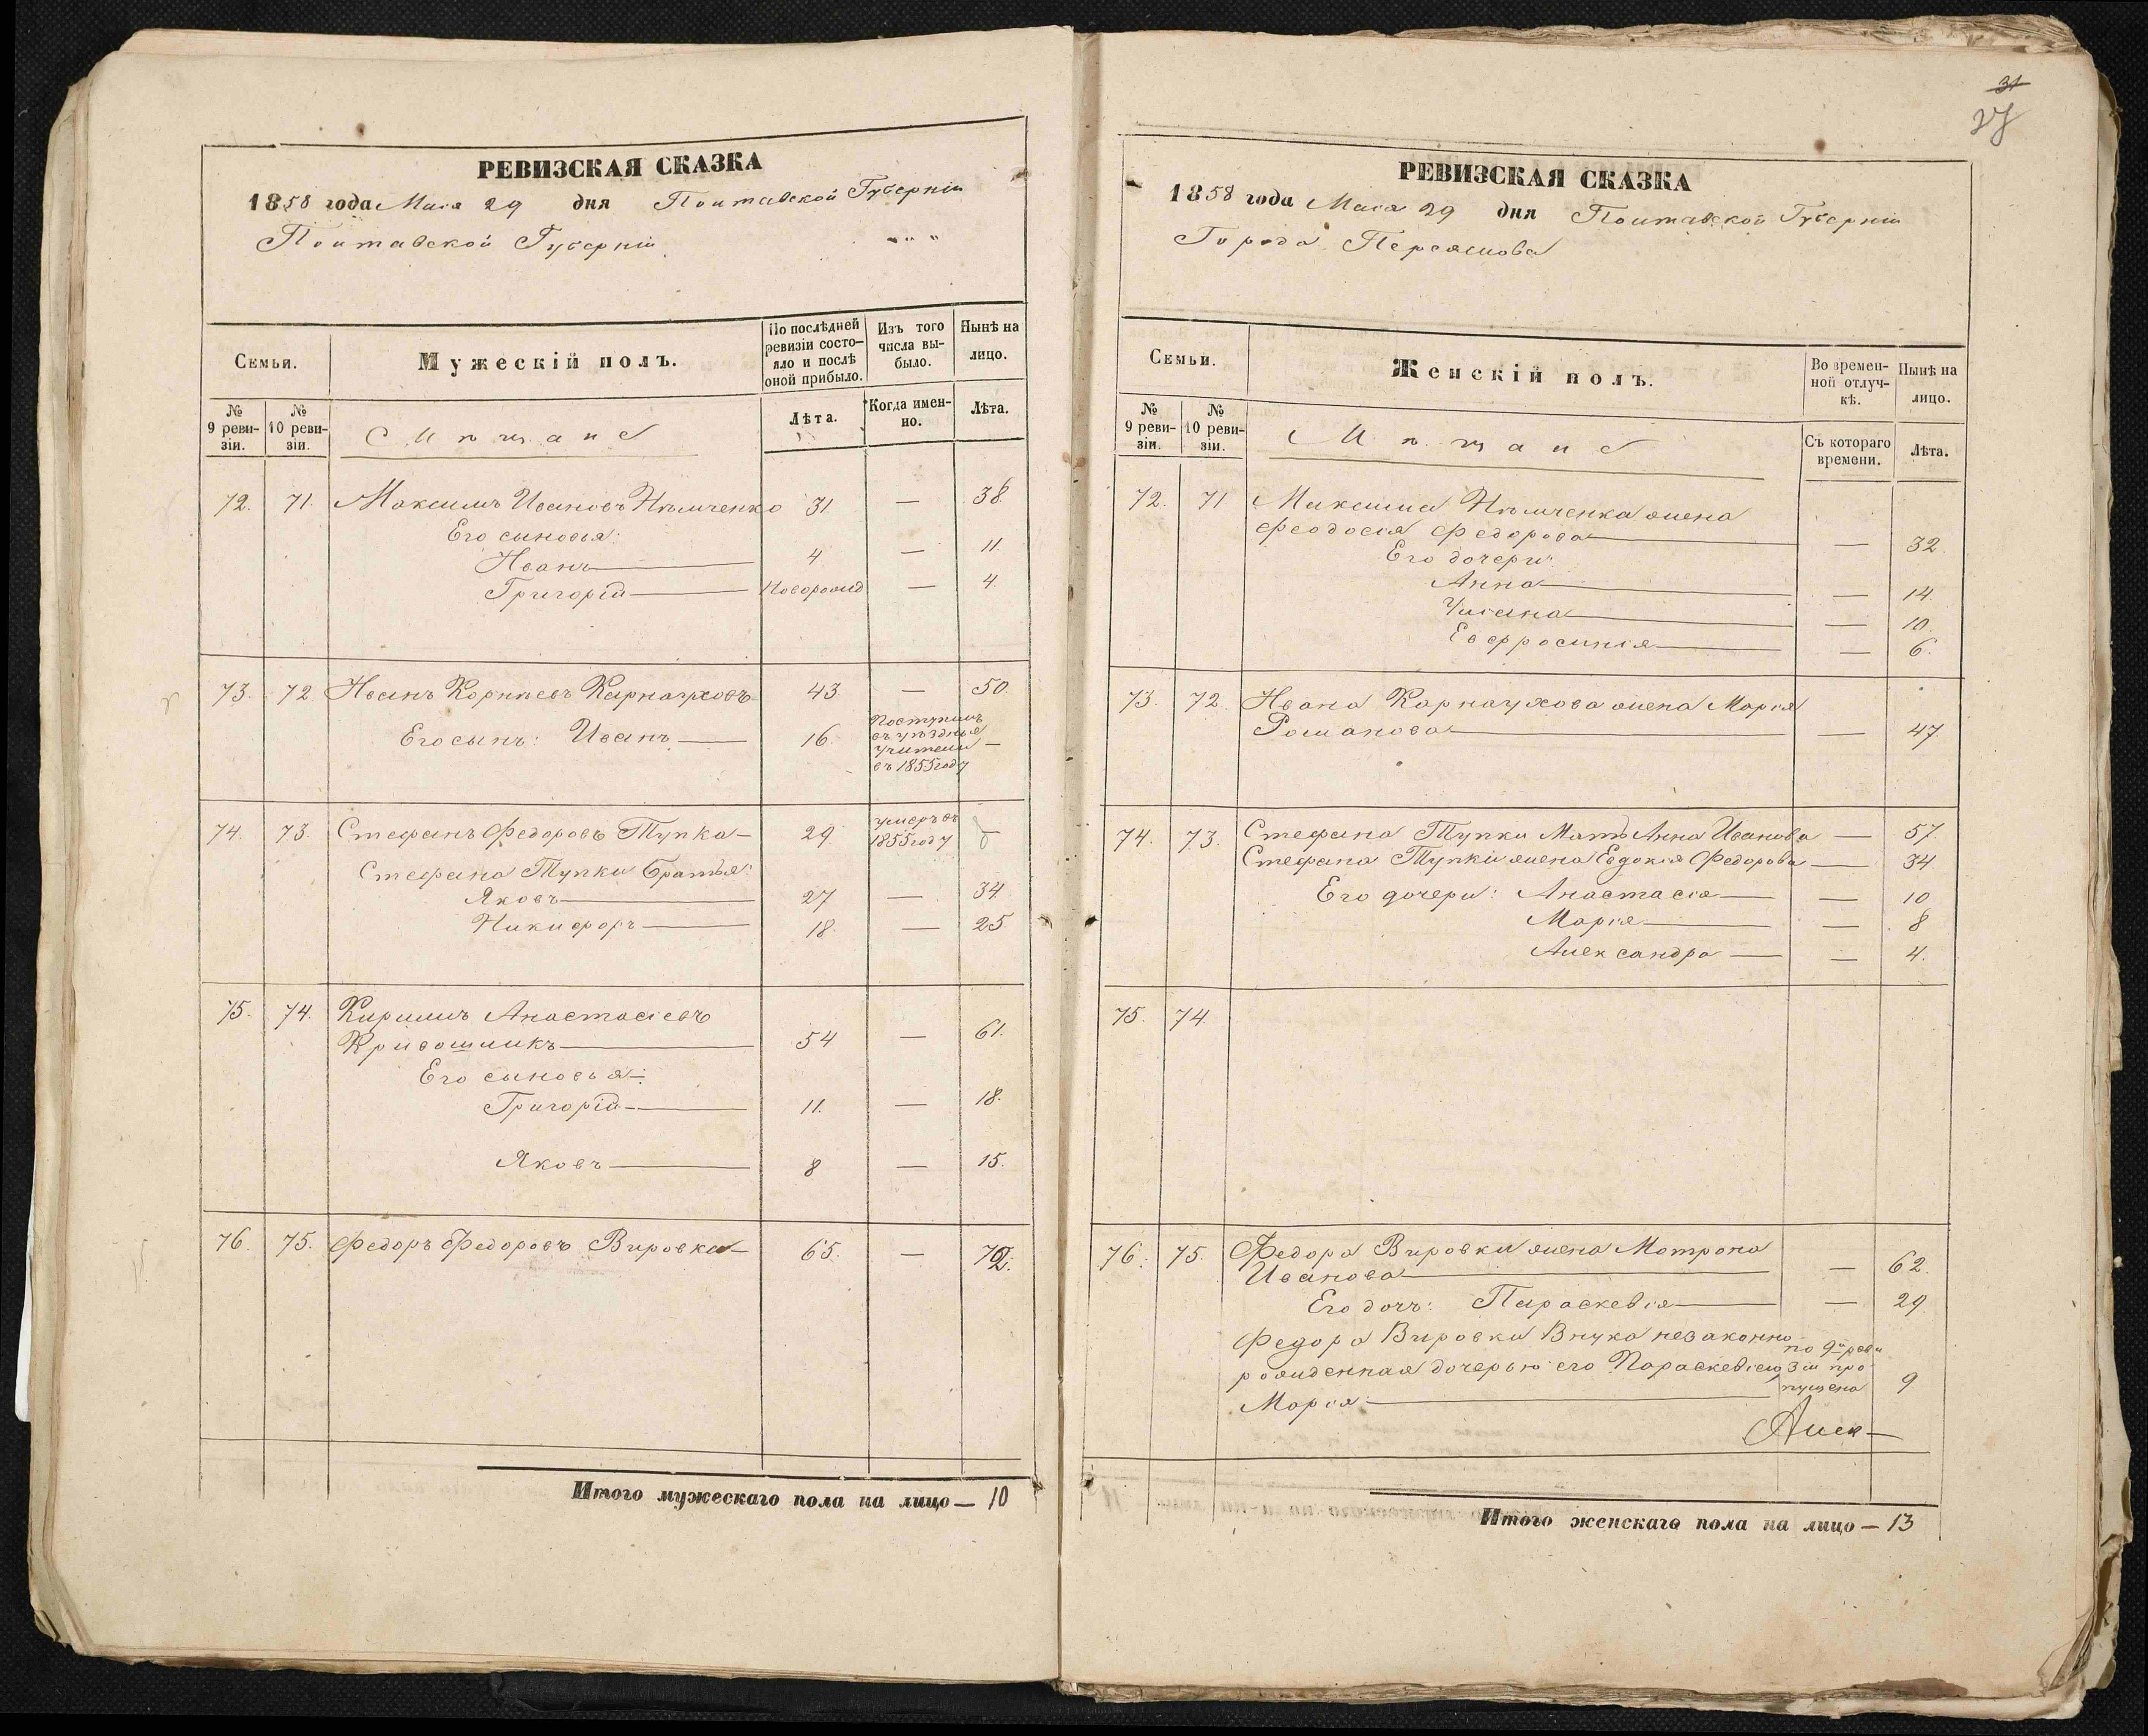 РЕВИЗСКАЯ СКАЗКА
1858 года Мая 29 дня Полтавской Губерніи
Полтавской Губерніи „ „
Семьи.
Мужескій полъ.
По послѣдней ревизіи состояло и послѣ оной прибыло.
Изъ того числа выбыло.
Нынѣ на лицо.
№ 9 ревизіи.
№ 10 ревизіи.
Мѣщане
Лѣта.
Когда именно.
Лѣта.
72. 71. Максимъ Ивановъ Нѣмченко 31 — 38.
Его сыновья:
Иванъ 4 — 11.
Григорій Новорожд — 4.
73. 72 Иванъ Корнѣевъ Карнауховъ 43 — 50.
Его сынъ: Иванъ 16 Поступилъ въ уѣздные учители въ 1855 году —
74. 73. Стефанъ Федоровъ Тупка 29 умеръ въ 1855 году —
Стефана Тупки братья:
Яковъ 27 — 34
Никифоръ 18 — 25
75. 74. Кирилъ Анастасіевъ
Кривошликъ 54 — 61.
Его сыновья:
Григорій 11. — 18.
Яковъ 8 — 15.
76. 75. Федоръ Федоровъ Вировка 65. — 72.
Итого мужескаго пола на лицо — 10
31
27
РЕВИЗСКАЯ СКАЗКА
1858 года Мая 29 дня Полтавской Губерніи
Города Переяслова
Семьи.
Женскій полъ.
Во временной отлучкѣ.
Нынѣ на лицо.
№ 9 ревизіи.
№ 10 ревизіи.
Мѣщане
Съ котораго времени.
Лѣта.
72. 71 Максима Нѣмченка жена
Феодосія Федорова — 32
Его дочери:
Анна — 14.
Уліяна — 10.
Евфросинія — 6.
73. 72. Ивана Карнаухова жена Марія
Романова — 47
74. 73. Стефана Тупки Мать Анна Иванова — 57.
Стефана Тупки жена Евдокія Федорова — 34
Его дочери: Анастасія — 10
Марія — 8
Александра — 4.
75. 74.
76. 75. Федора Вировки жена Матрона
Иванова — 62.
Его дочь: Параскевія — 29
Федора Вировки Внука незаконно
рожденная дочерью его Параскевіею
Марія по 9й ревизіи пропущена 9
Алек—
Итого женскаго пола на лицо — 13